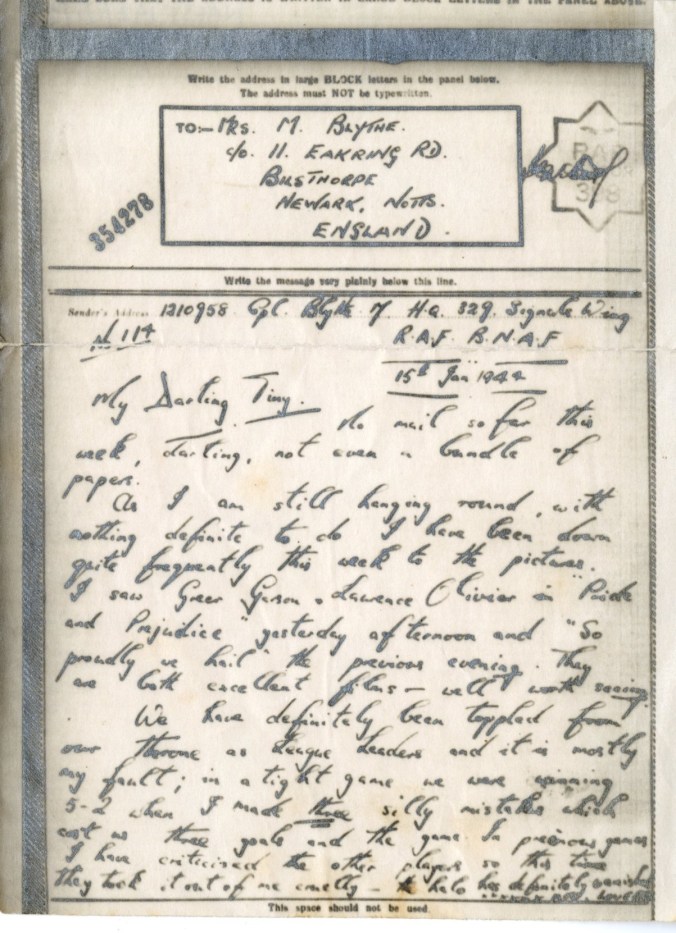 Write the address in large BLOCK letters in the panel below.
The address must NOT be typewritten.
TO:— MRS. M. BLYTHE.
c/o. 11. EAKRING RD.
BILSTHORPE
NEWARK, NOTTS.
ENGLAND.
354278
Write the message very plainly below this line.
Sender's Address 1210958 Cpl. Blythe M H.Q. 329. Signals Wing
No 114 R.A.F. B.N.A.F
15th Jan 1944
My Darling Tiny.
No mail so far this
week, darling, not even a bundle of
papers.
As I am still hanging round, with
nothing definite to do I have been down
quite frequently this week to the pictures.
I saw Greer Garson & Lawrence Olivier in "Pride
and Prejudice" yesterday afternoon and "So
proudly we hail" the previous evening. They
are both excellent films — well worth seeing.
We have definitely been toppled from
our throne as League Leaders and it is mostly
my fault; in a tight game we were winning
5-2 when I made three silly mistakes which
cost us three goals and the game. In previous games
I have criticised the other players so this time
they took it out of me cruelly — the halo has definitely vanished
This space should not be used.